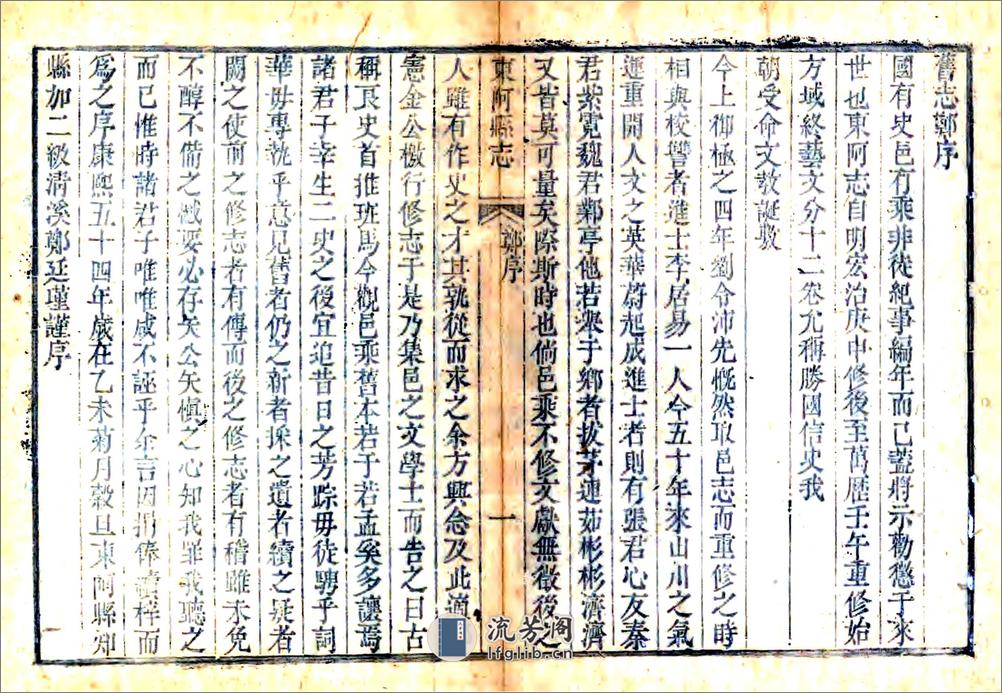 舊志鄭序
國有史邑有乘非徒紀事編年而已蓋將示勸懲于來
世也東阿志自明宏治庚申修後至萬歷壬午重修始
方域終藝文分十二卷允稱勝國信史我
朝受命文教誕敷
今上御極之四年劉令沛先慨然取邑志而重修之時
相與校讐者進士李居易一人今五十年來山川之氣
運重開人文之英華蔚起成進士者則有張君心友秦
君紫霓魏君鄰亭他若舉于鄉者拔茅連茹彬彬濟濟
又皆莫可量矣際斯時也倘邑乘不修文獻無徵後之
東阿縣志 鄭序 一
人雖有作史之才其孰從而求之余方興念及此適
憲金公檄行修志于是乃集邑之文學士而告之曰古
稱良史首推班馬今觀邑乘舊本若于若孟奚多讓焉
諸君子幸生二史之後宜追昔日之芳踪毋徒騁乎詞
華毋專執乎意見舊者仍之新者採之遺者續之疑者
闕之使前之修志者有傳而後之修志者有稽雖未免
不醇不備之憾要必存矢公矢慎之心知我罪我聽之
而已惟時諸君子唯唯咸不誣乎余言因捐俸濟梓而
為之序康熙五十四年歲在乙未菊月穀旦東阿縣知
縣加二級清溪鄭廷瑾謹序
流芳閣
lfglib.cn